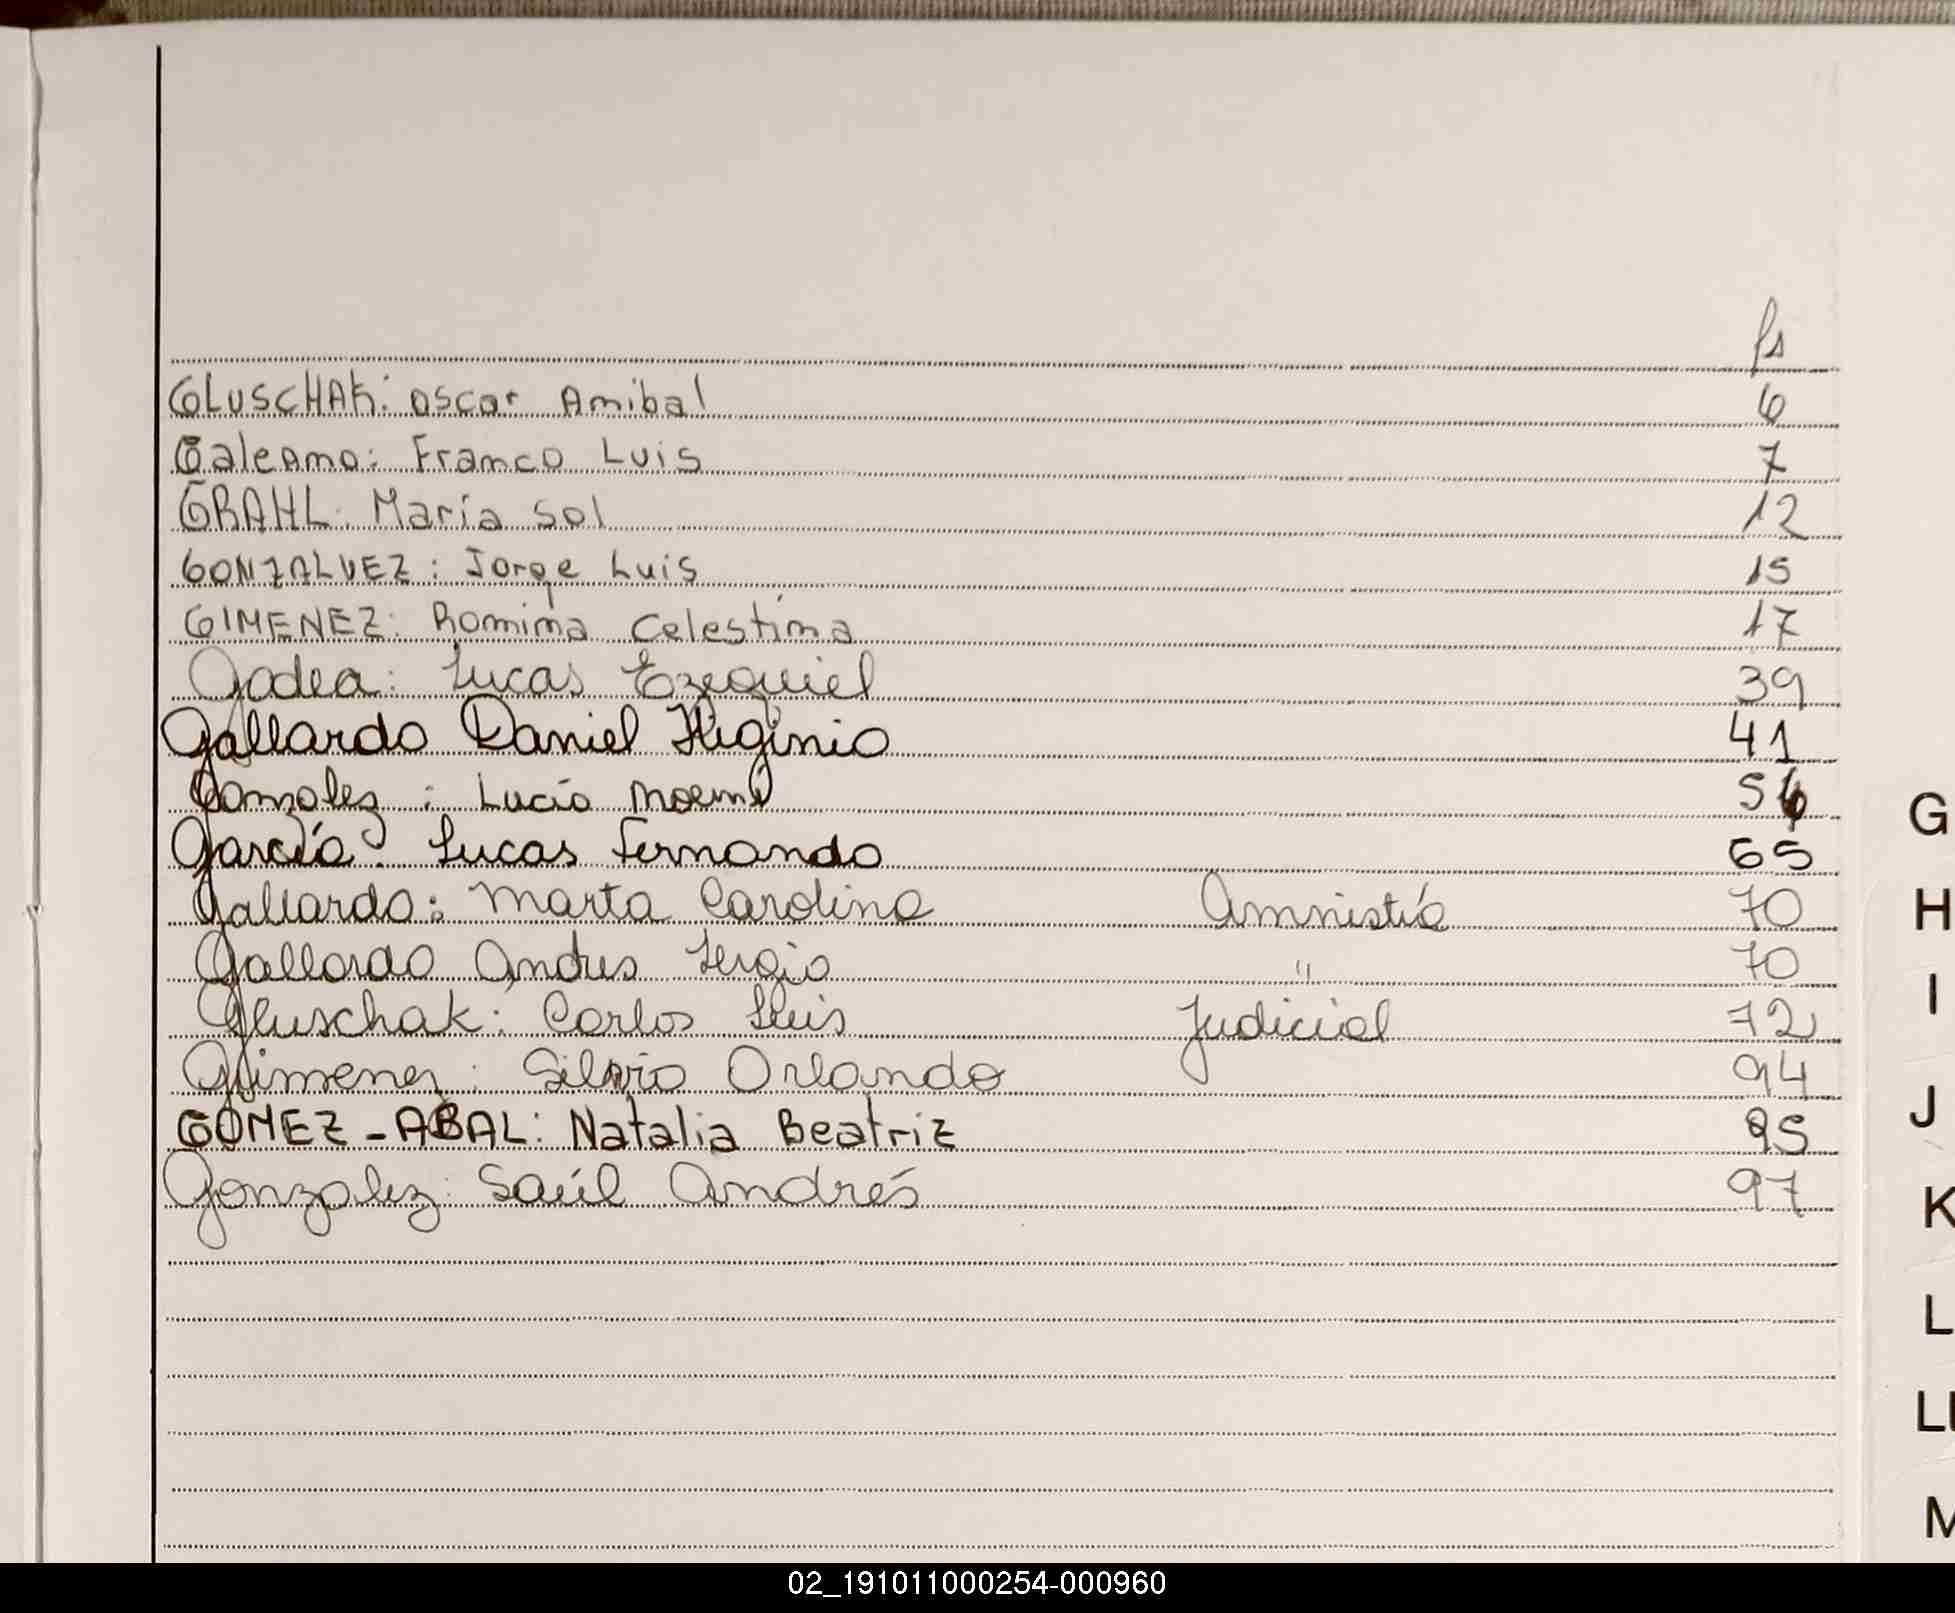 fs
GLUSCHAK: Oscar Anibal 6
Galeano: Franco Luis 7
GRAHL: María Sol 12
GONZALVEZ: Jorge Luis 15
GIMENEZ: Romina Celestina 17
Godea: Lucas Ezequiel 39
Gallardo Daniel Higinio 41
Gonzalez: Lucía Noemí
García: Lucas Fernando 65
G
Gallardo: Marta Carolina Amnistía 70
H
Gallardo Andres Sergio " 70
I
Gluschak: Carlos Luis Judicial 72
Gimenez: Silvio Orlando 94
J
GOMEZ - ABAL: Natalia Beatriz 95
Gonzalez: Saúl Andrés 97
K
L
LL
M
02_191011000254-000960